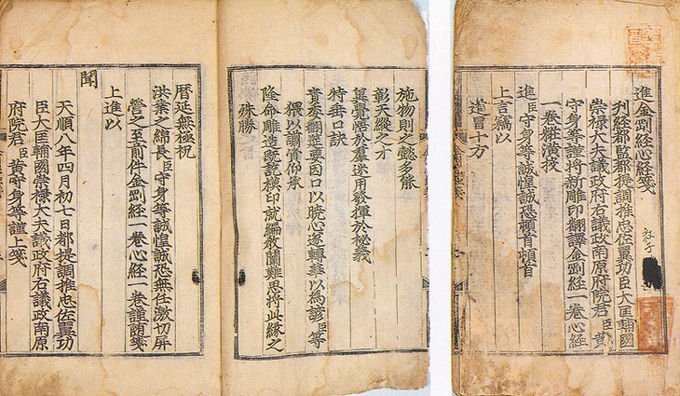 進金剛經心經箋
刊經都監都提調推忠佐翼功臣大匡輔國
崇祿大夫議政府右議政南原府院君臣黃
守身等謹將新雕印翻譯金剛經一卷心經
一卷粧潢投
進臣守身等誠惶誠恐頓首頓首
上言竊以
道冒十方
施物則之懿多能
彰天縱之才
覺悟於羣迷用發揮於秘義
特垂口訣
委翻要因口以曉心遂轉華以爲諺臣等
猥以譾膚仰承
隆命雕造旣訖模印就編教闡難思將此緣之
殊勝
曆延無極祝
洪業之綿長臣守身等誠惶誠恐無任激切屏
營之至前件金剛經一卷心經一卷謹隨箋
上進以
聞
天順八年四月初七日都提調推忠佐翼功
臣大匡輔國崇祿大夫議政府右議政南原
府院君臣黃守身等謹上箋